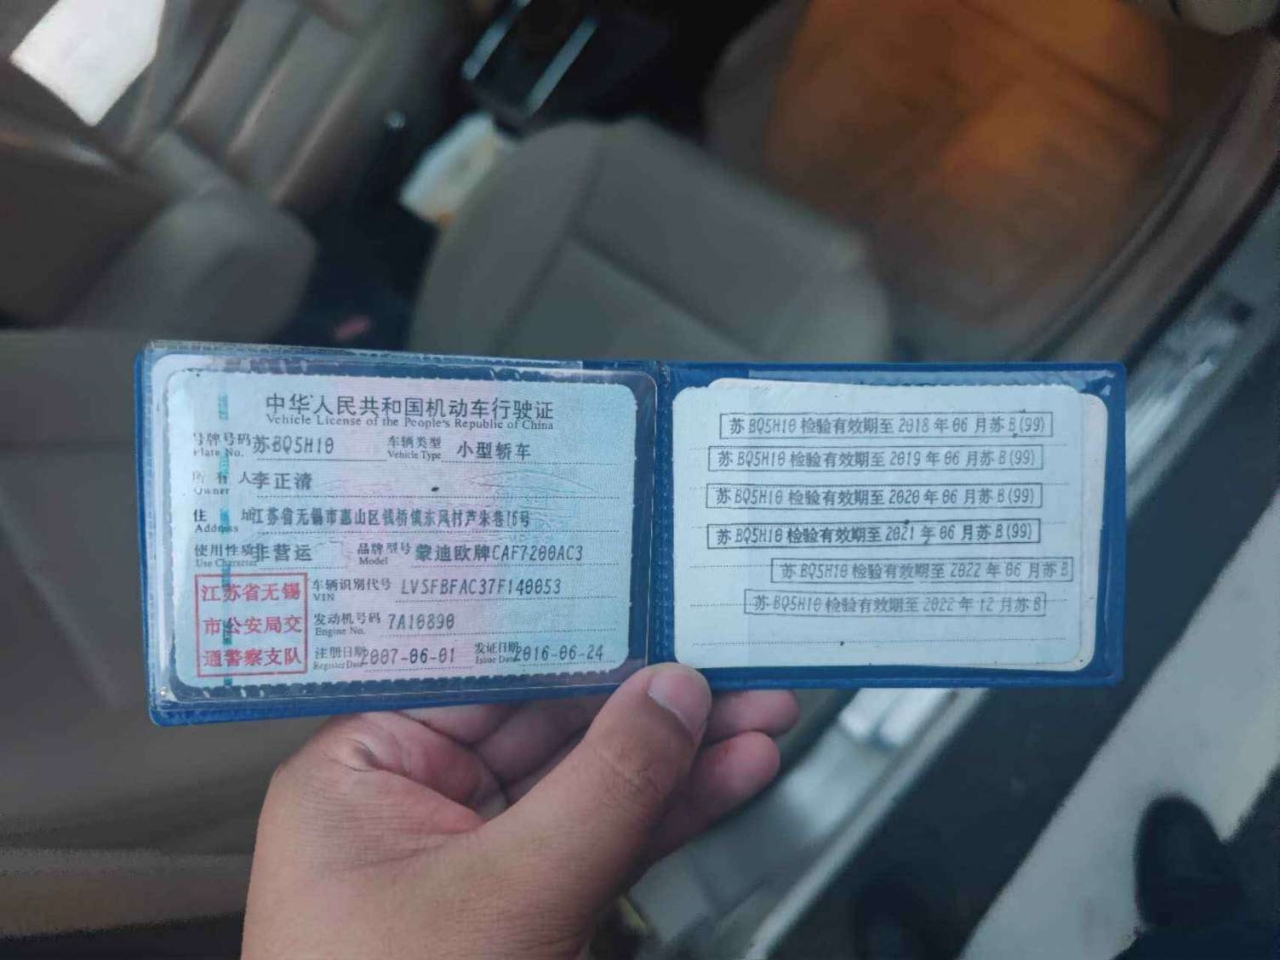 中华人民共和国机动车行驶证
Vehicle License of the People's Republic of China
号牌号码 苏BQ5H10 车辆类型 小型轿车
Plate No. Vehicle Type
所有人 李正清
Owner
住址 江苏省无锡市惠山区钱桥镇东风村芦朱巷16号
Address
使用性质 非营运 品牌型号 蒙迪欧牌CAF7200AC3
Use Character Model
江苏省无锡 车辆识别代号 LVSFBFAC37F140053
VIN
市公安局交 发动机号码 7A10890
Engine No.
通警察支队 注册日期 2007-06-01 发证日期 2016-06-24
Register Date Issue Date
苏BQ5H10检验有效期至2018年06月苏B(99)
苏BQ5H10检验有效期至2019年06月苏B(99)
苏BQ5H10检验有效期至2020年06月苏B(99)
苏BQ5H10检验有效期至2021年06月苏B(99)
苏BQ5H10检验有效期至2022年06月苏B
苏BQ5H10检验有效期至2022年12月苏B